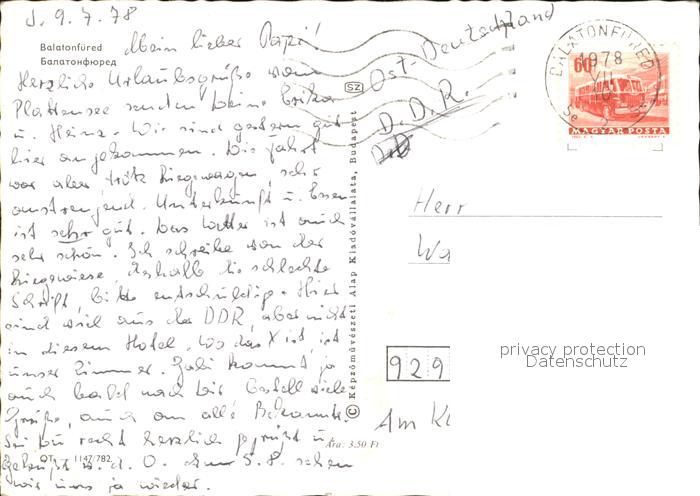 d. 9.7.78
Balatonfüred
Балатонфюред
Mein lieber Papi!
Herzliche Urlaubsgrüße vom
Plattensee senden Deine Erika
u. Heinz. Wir sind gestern gut
hier angekommen. Die Fahrt
war aber trotz Liegewagen, sehr
anstrengend. Unterkunft u. Essen
ist sehr gut. Das Wetter ist auch
sehr schön. Ich schreibe von der
Liegewiese, deshalb die schlechte
Schrift, bitte entschuldige. Hier
sind viel aus der DDR, aber nicht
in diesem Hotel. Wo das X ist, ist
unser Zimmer. Gabi kommt ja
auch bald nach Dir. Bestell viele
Grüße, auch an alle Bekannte.
Sei Du recht herzlich gegrüßt u.
geküßt v. d. O. Am 5.8. sehen
wir uns ja wieder.
QT 1147/782
Ára: 3.50 Ft
© Képzőművészeti Alap Kiadóvállalata, Budapest
SZ
Ost-Deutschland
D.D.R.
BALATONFÜRED
1978
VII
10
60f
MAGYAR POSTA
Herr
Wa
929
Am Kl
privacy protection
Datenschutz